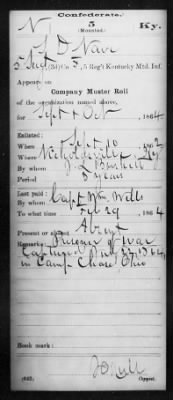 Confederate.
N 5 Ky.
(Mounted.)
D Nave
Co. F, 5 Reg't Kentucky Mtd. Inf.
Appears on
Company Muster Roll
of the organization named above,
for Sept & Oct, 1864
Enlisted:
When Sept 10, 1862
Where Nicholasville Ky
By whom
Period 3 years
Last paid:
By whom Capt Wm Wills
To what time Feb 29, 1864
Present or absent Absent
Remarks: Prisoner of War
Captured
in Camp Chase Ohio
Book mark:
Copyist.